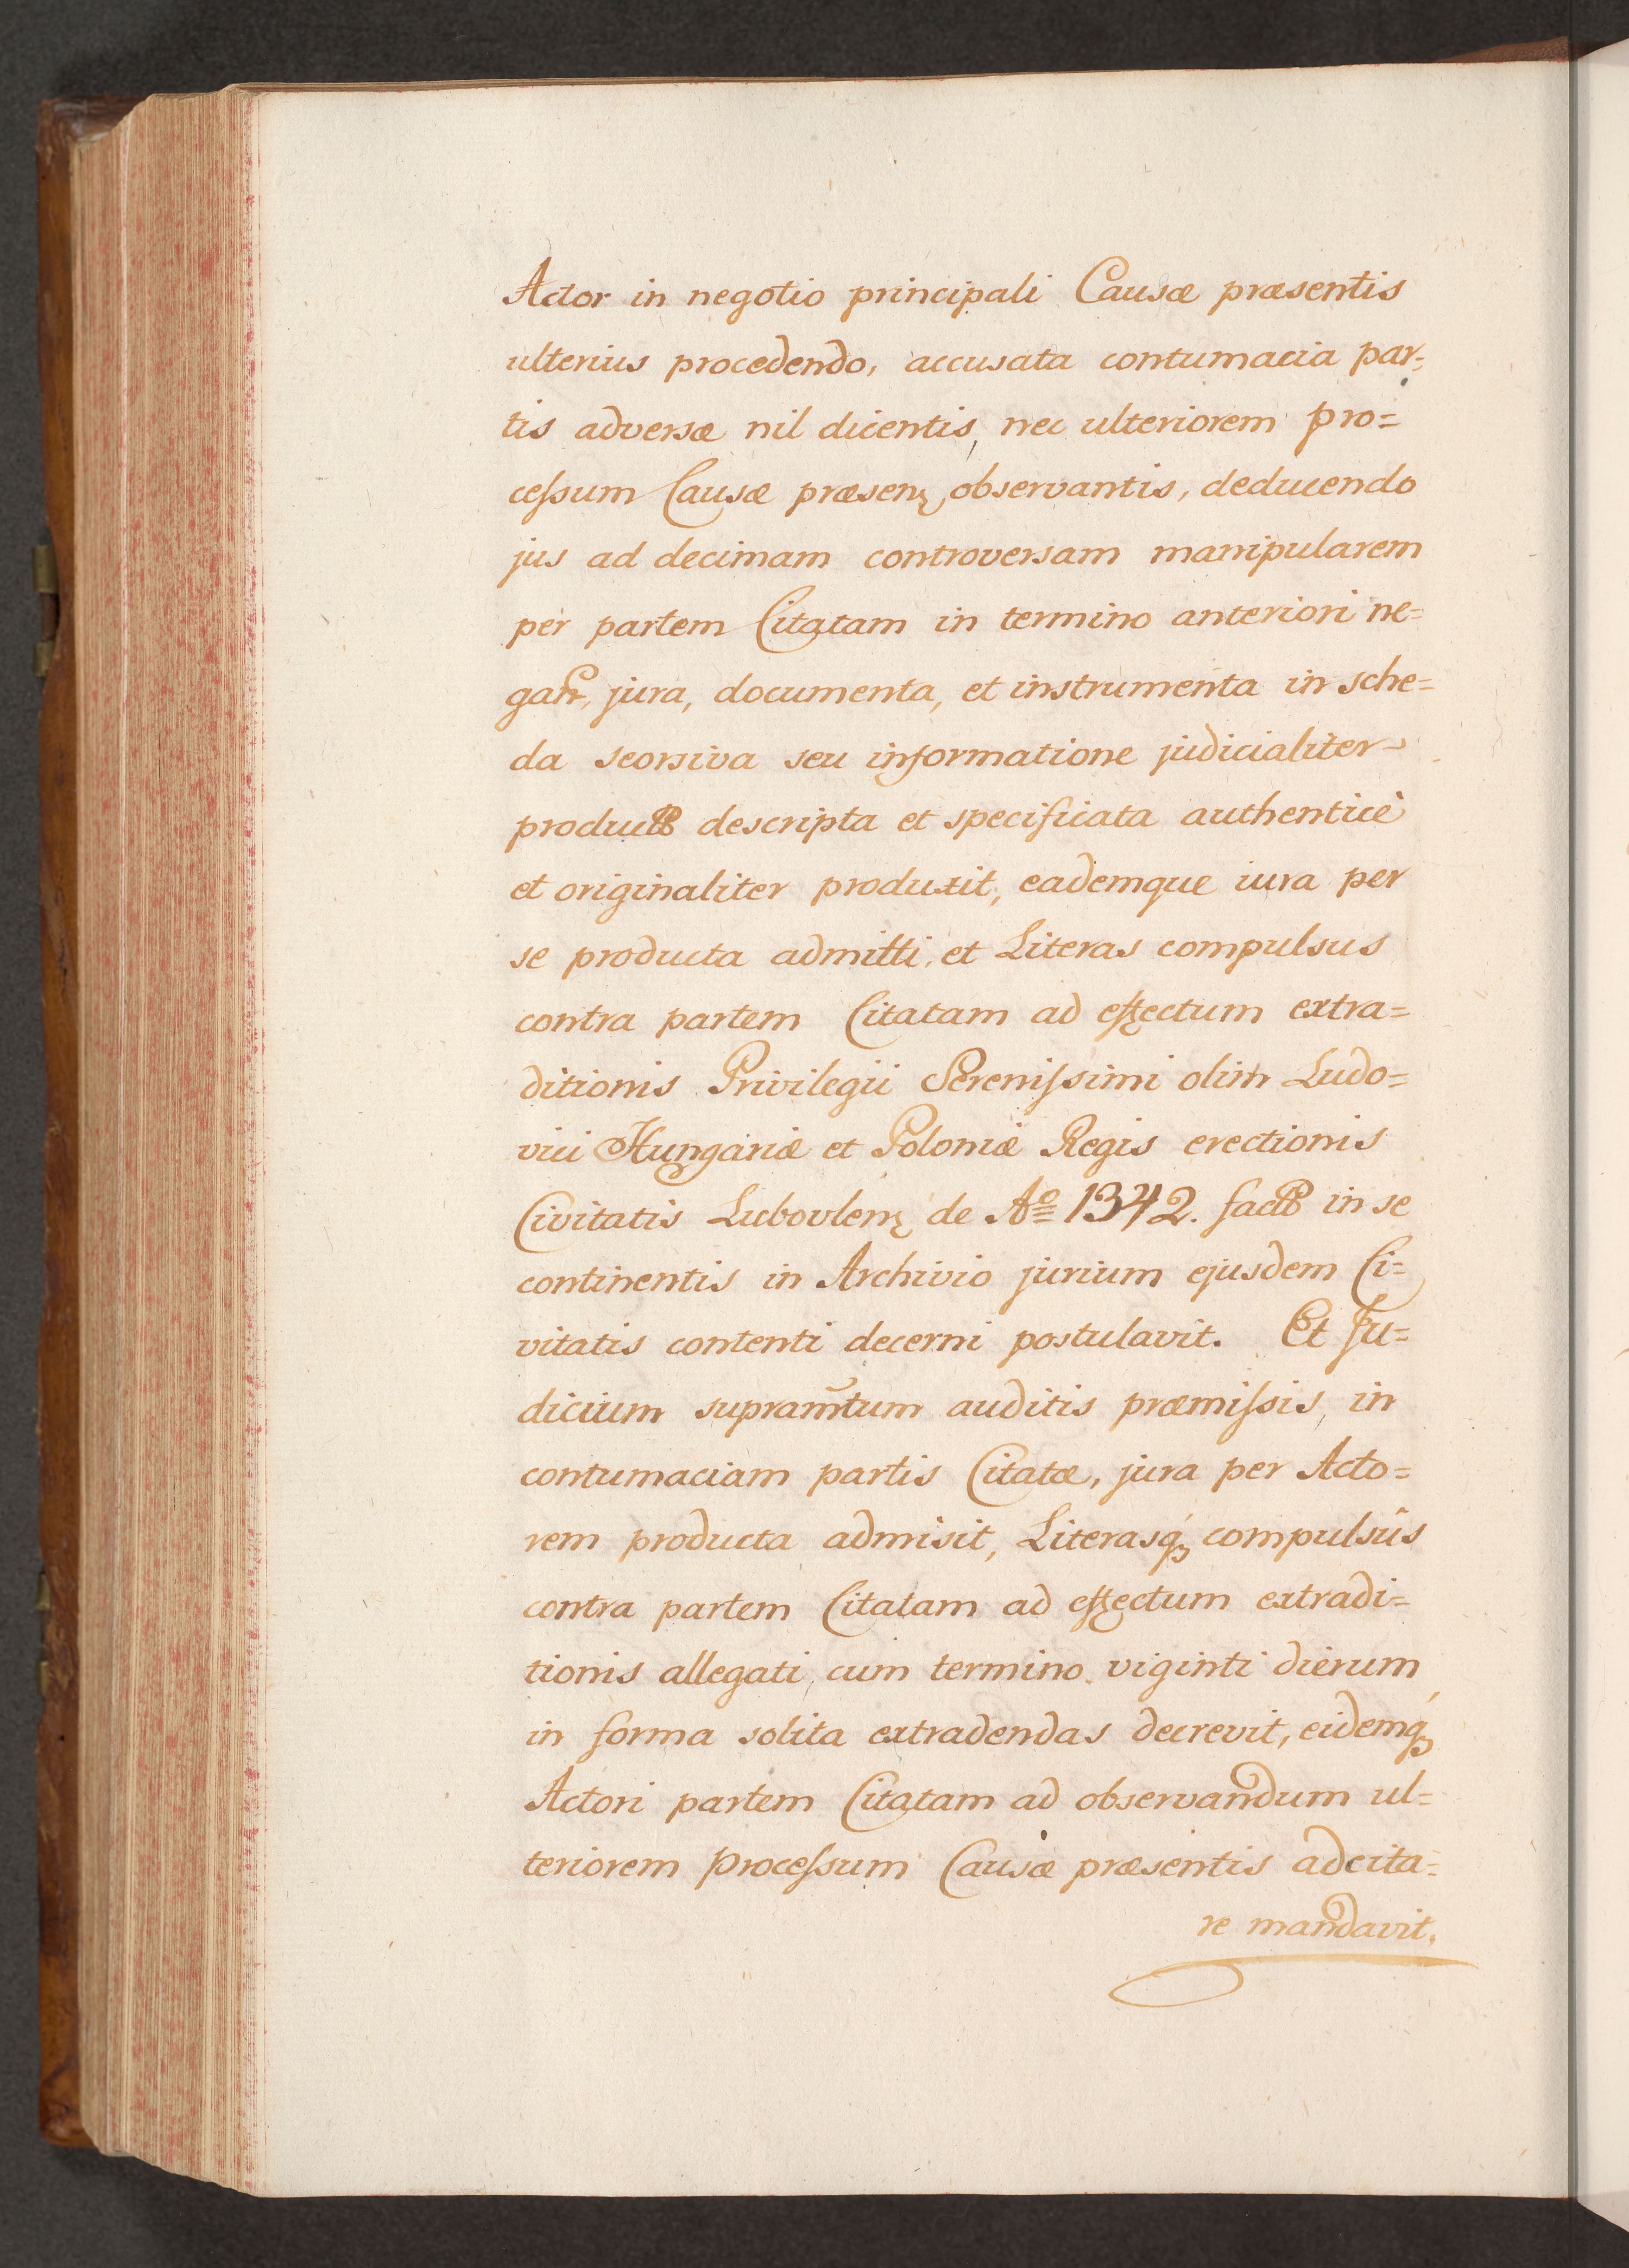 Actor in negotio principali Causæ præsentis
ulterius procedendo, accusata contumacia par=
tis adversæ nil dicentis, nec ulteriorem pro=
ceſsum Causæ præsenꝭ observantis, deducendo
jus ad decimam controversam manipularem
per partem Citatam in termino anteriori ne=
jura, documenta, et instrumenta in sche=
da seorsiva seu informatione judicialiter
descripta et specificata authenticè
et originaliter produxit, eademque iura per
se producta admitti, et Literas compulsus
contra partem Citatam ad effectum extra=
ditionis Privilegii Sereniſsimi olim Ludo=
vici Hungariæ et Poloniæ Regis erectionis
Civitatis Lubovlenꝭ de Aº 1342. in se
continentis in Archivio jurium ejusdem Ci=
vitatis contenti decerni postulavit. Et Ju=
dicium supramtum auditis præmiſsis, in
contumaciam partis Citatæ, jura per Acto=
rem producta admisit, Literasq́ꝫ compulsûs
contra partem Citatam ad effectum extradi=
tionis allegati, cum termino viginti dierum
in forma solita extradendas decrevit, eidemq́ꝫ
Actori partem Citatam ad observandum ul=
teriorem proceſsum Causæ præsentis adcita=
re mandavit.